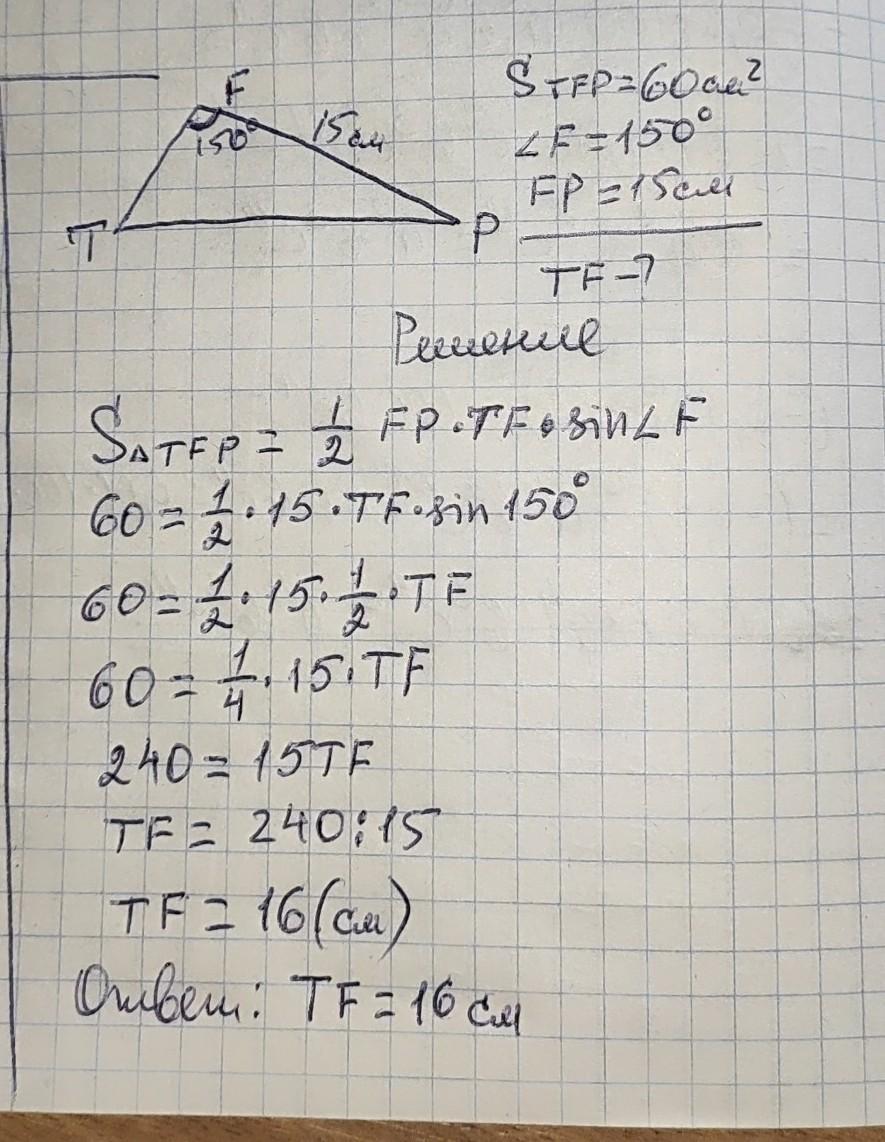 F
150° 15см
T P
S TFP = 60 см²
∠F = 150°
FP = 15см
TF - ?
Решение
S△TFP = 1/2 FP · TF · sin∠F
60 = 1/2 · 15 · TF · sin 150°
60 = 1/2 · 15 · 1/2 · TF
60 = 1/4 · 15 · TF
240 = 15TF
TF = 240 : 15
TF = 16 (см)
Ответ: TF = 16 см